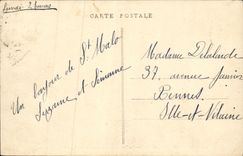 Lundi 2
CARTE POSTALE
Un bonjour de St Malo
Suzanne et Simonne
Madame Delalande
37, avenue Janvier
Rennes
Ille-et-Vilaine